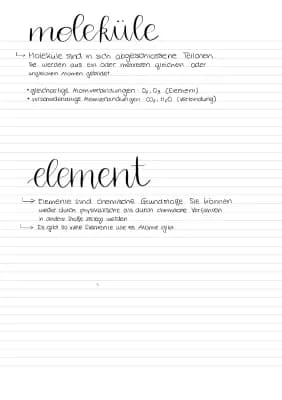 moleküle
↳ Moleküle sind in sich abgeschlossene Teilchen.
Sie werden aus ein oder mehreren gleichen oder
ungleichen Atomen gebildet
• gleichartige Atomverbindungen: O₂, O₃ (Element)
• verschiedenartige Atomverbindungen: CO₂, H₂O (Verbindung)
element
↳ Elemente sind chemische Grundstoffe. Sie können
weder durch physikalische als durch chemische Verfahren
in andere Stoffe zerlegt werden
↳ Es gibt so viele Elemente wie es Atome gibt